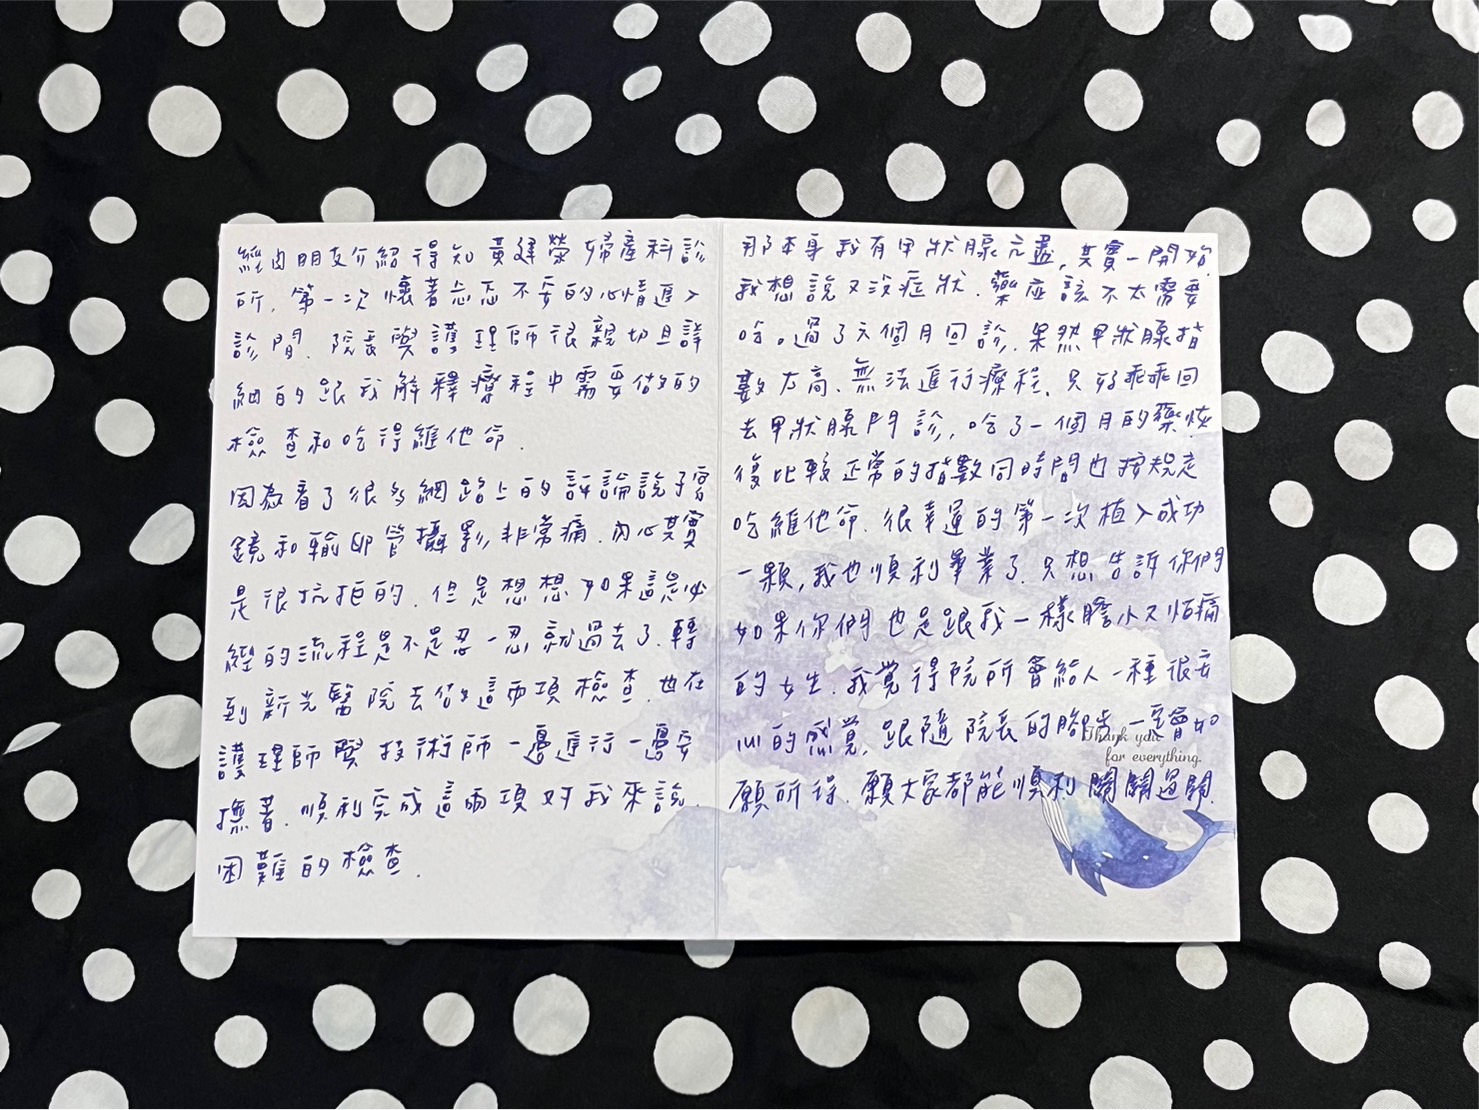 經由朋友介紹得知黃建榮婦產科診
所, 第一次懷著忐忑不安的心情進入
診間. 院長與護理師很親切且詳
細的跟我解釋療程中需要做的
檢查和吃得維他命.
因為看了很多網路上的評論說子宮
鏡和輸卵管攝影非常痛. 內心其實
是很抗拒的. 但是想想如果這是必
經的流程是不是忍一忍就過去了. 轉
到新光醫院去做這兩項檢查. 也在
護理師與技術師一邊進行一邊安
撫著. 順利完成這兩項對我來說
困難的檢查.
那本身我有甲狀腺亢盛, 其實一開始
我想說又沒症狀. 藥應該不太需要
吃. 過了六個月回診. 果然甲狀腺指
數太高. 無法進行療程. 只好乖乖回
去甲狀腺門診, 吃了一個月的藥恢
復比較正常的指數同時間也按規定
吃維他命. 很幸運的第一次植入成功
一顆, 我也順利畢業了. 只想告訴你們
如果你們也是跟我一樣膽小又怕痛
的女生. 我覺得院所會給人一種很安
心的感覺, 跟隨院長的腳步, 一定會如
願所得. 願大家都能順利關關過關.
Thank you
for everything.